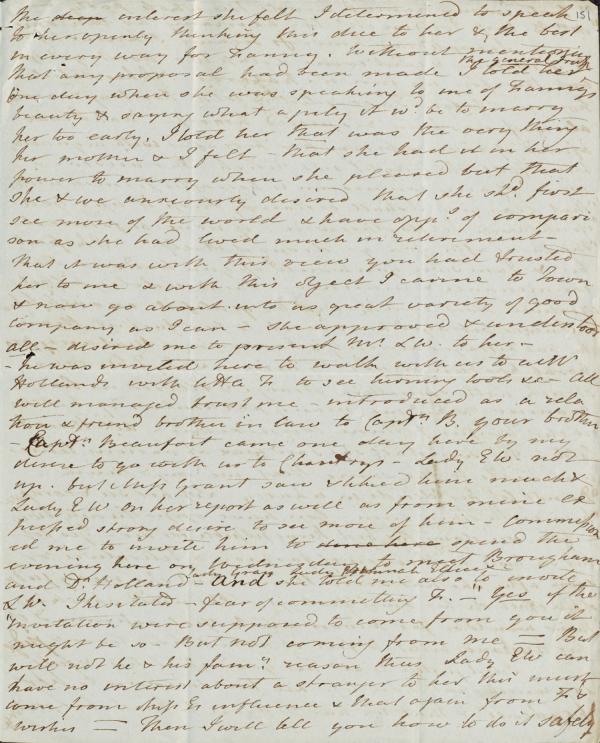 151
The interest she felt I determined to speak
to her openly thinking this due to her & the best
in every way for Fanny. Without mentioning
that any proposal had been made the general truth I told her
One day when she was speaking to me of Fannys
beauty & saying what a pity it wd. be to marry
her too early. I told her that was the very thing
her mother & I felt - that she had it in her
power to marry when she pleased but that
she & we anxiously desired that she shd. first
see more of the world & have oppy. of compari
son as she had lived much in retirement -
That it was with this view you had trusted
her to me & with this object I came to Town
& now go about into as great variety of good
company as I can - She approved & understood
all - desired me to present Mr. LW. to her -
- he was invited here to walk with us to
Hollands with & F. to see turning tools &c - All
well managed trust me - introduced as a rela
tion & friend brother in law to Captn. B. your brother
- Captn. Beaufort came one day here by my
desire to go with us to Chantrys - Lady EW. not
up. but Miss Grant saw & liked him much &
Lady EW on her report as well as from mine ex
pressed strong desire to see more of him - Commission
ed me to invite him to dine here spend the
evening here on Wednesday to meet Brougham
and Dr. Holland and she told me also to invite
LW. I hesitated - fear of committing F. - "Yes if the
"invitation were supposed to come from you it
might be so - But not coming from me = But
will not he & his famy. reason thus Lady EW can
have no interest about a stranger to her this must
come from Miss Es influence & that again from Fs
wishes = Then I will tell you how to do it safely